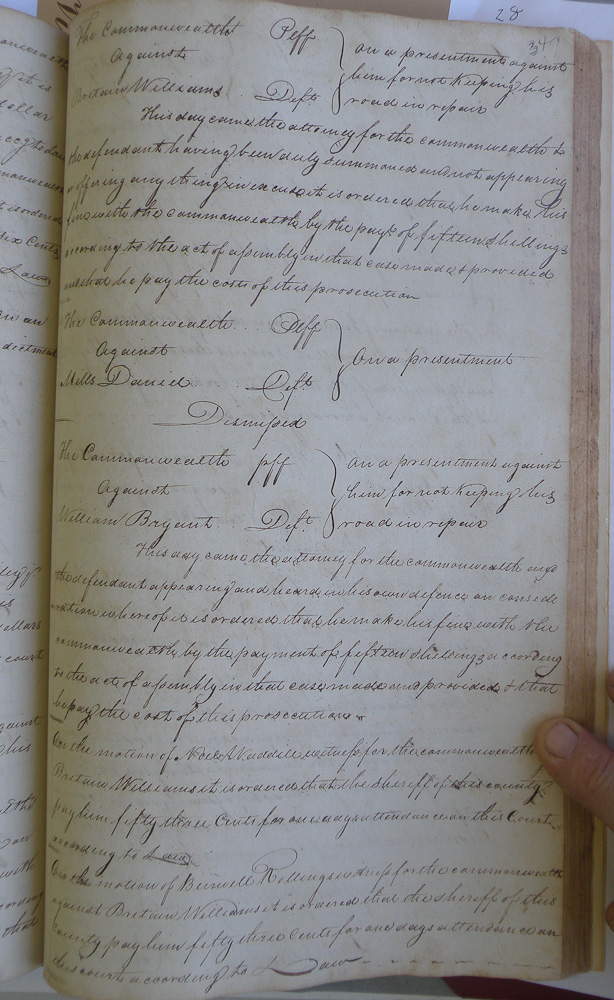 28
347
The Commonwealth Plff
Against
Britain Williams. Deft.
on a presentment against
him for not Keeping his
road in repair
This day came the attorney for the commonwealth &
the defendant having been duly summoned and not appearing
or offering any thing in excuse it is ordered that he make his
fine with the commonwealth by the paymt of fifteen shillings
according to the act of assembly in that case made & provided
and that he pay the costs of this prosecution
The Commonwealth. Plff
Against
Mills Daniel. Deft.
On a presentment
Dismissed
The Commonwealth plff
Against
William Bryant. Deft.
on a presentment against
him for not Keeping his
road in repair
This day came the attorney for the commonwealth and
the defendant appearing and heard in his own defence on conside
ration whereof it is ordered that he make his fine with the
commonwealth by the payment of fifteen shillings according
to the act of assembly in that case made and provided & that
he pay the cost of this prosecution
On the motion of Noel Waddill witness for the commonwealth
Britain Williams it is ordered that the sheriff of this county
pay him fifty three Cents for one days attendance on this Court
according to Law
On the motion of Burwell Rollings witness for the commonwealth
against Britain Williams it is ordered that the sheriff of this
County pay him fifty three Cents for one days attendance on
this court according to Law